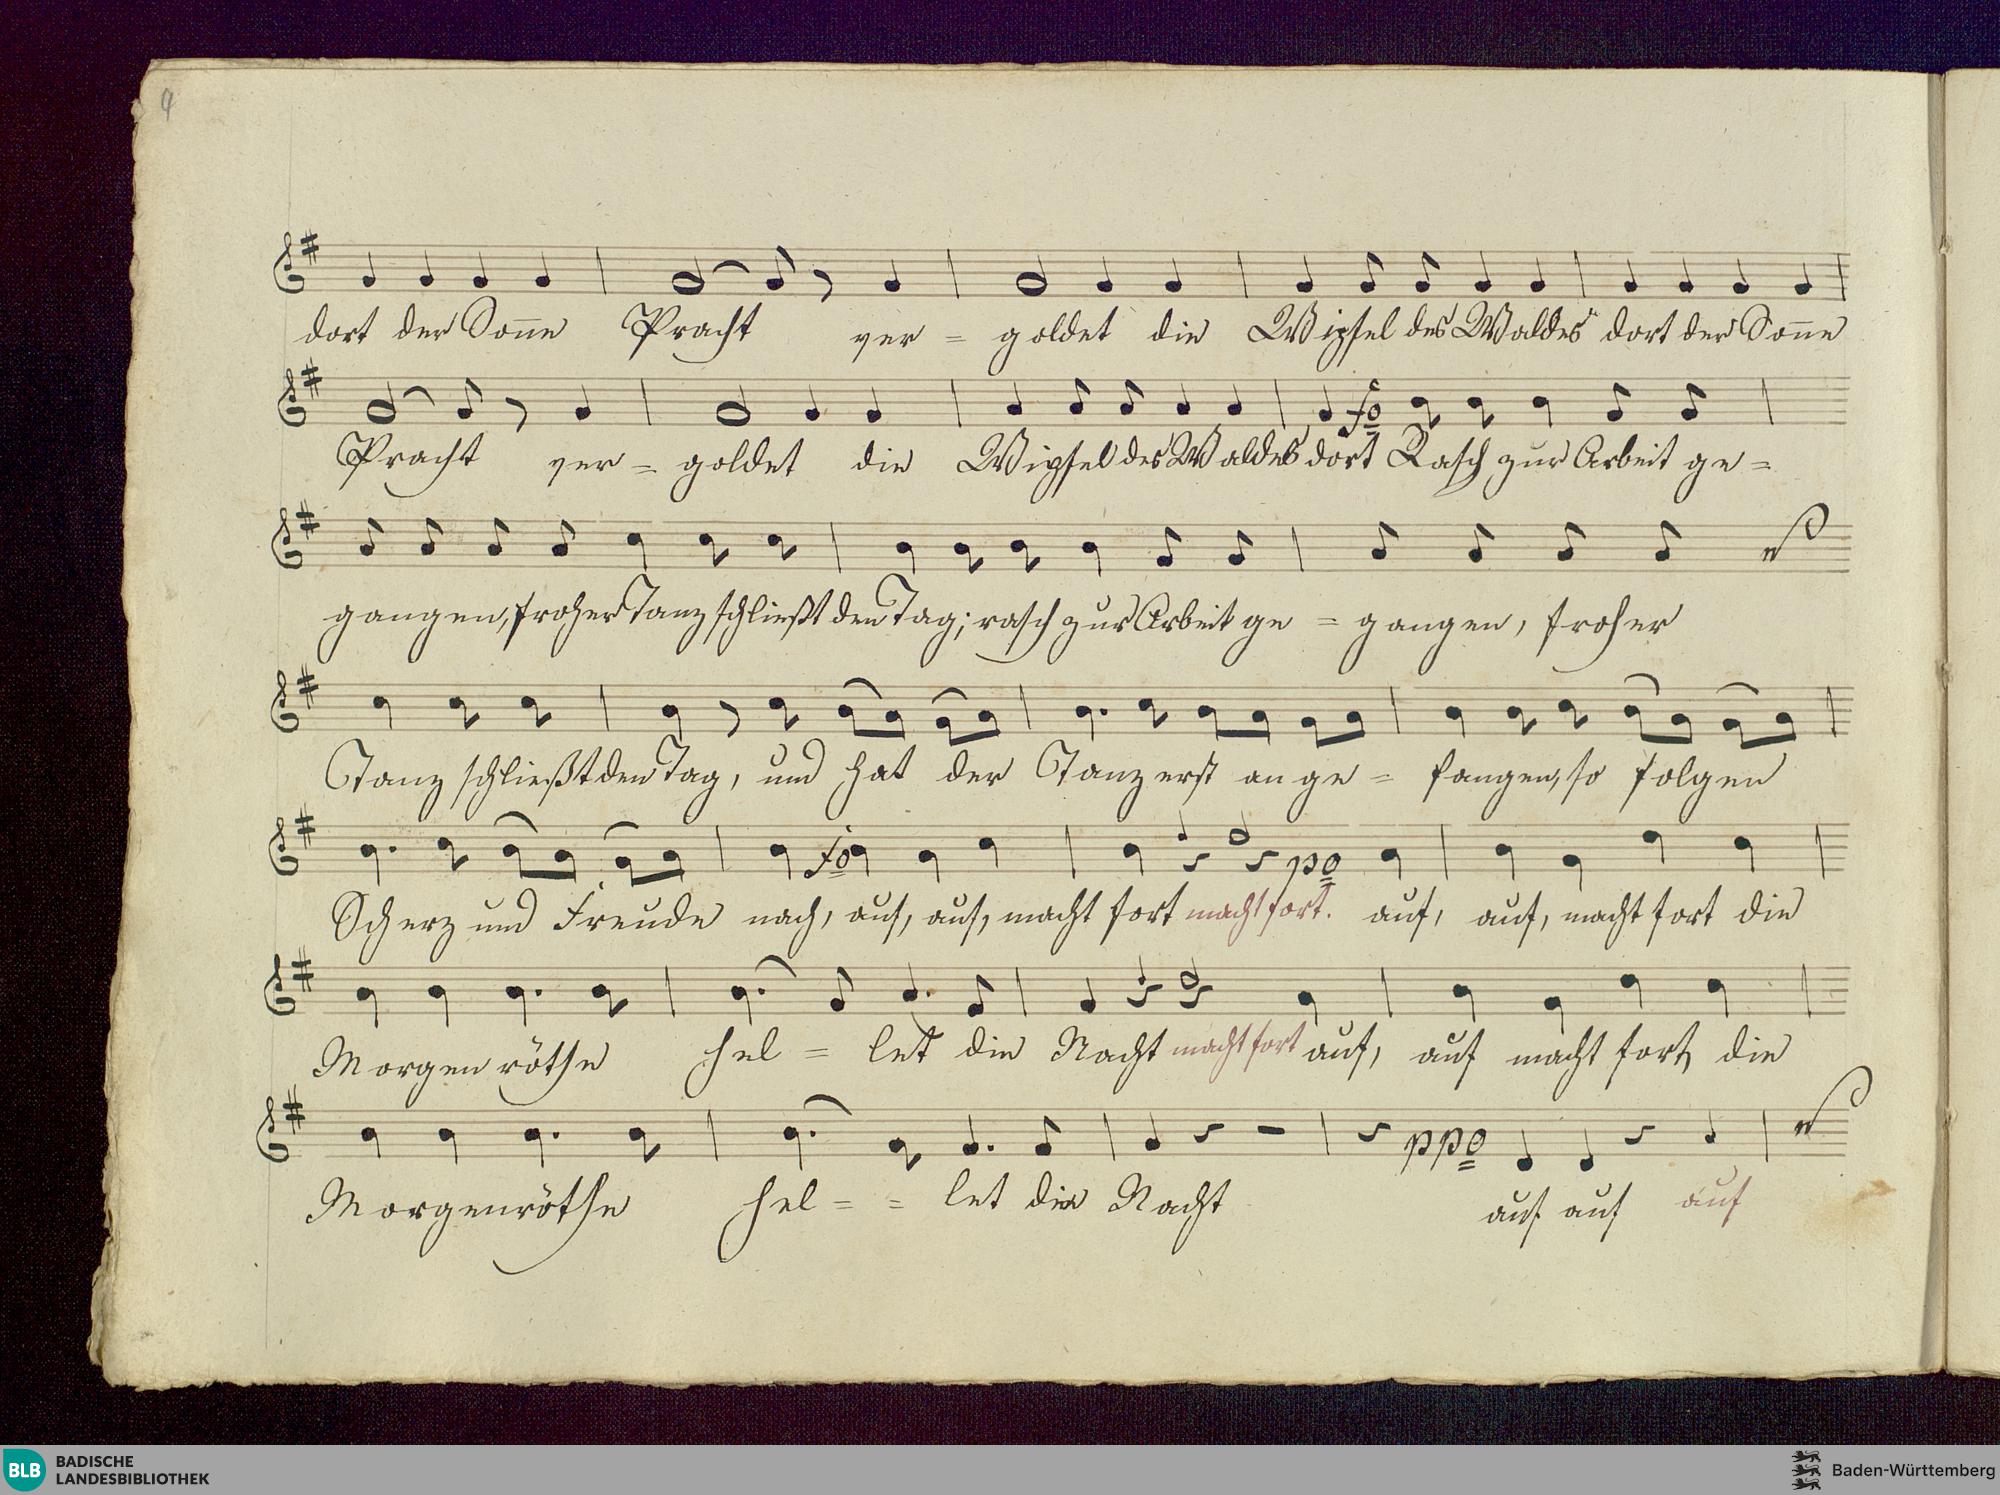 dort der Soñe Pracht ver = goldet die Wipfel des Waldes dort der Soñe
Pracht ver = goldet die Wipfel des Waldes dort fo Rasch zur Arbeit ge =
gangen, froher Tanz schließt den Tag; rasch zur Arbeit ge = gangen, froher
Tanz schließt den Tag, und hat der Tanz erst an ge = fangen, so folgen
fo po
Scherz und Freude nach, auf, auf, macht fort macht fort. auf, auf, macht fort die
Morgenröthe hel = let die Nacht macht fort auf, auf macht fort, die
ppo
Morgenröthe hel = = let die Nacht auf auf auf
BLB BADISCHE
LANDESBIBLIOTHEK
Baden-Württemberg